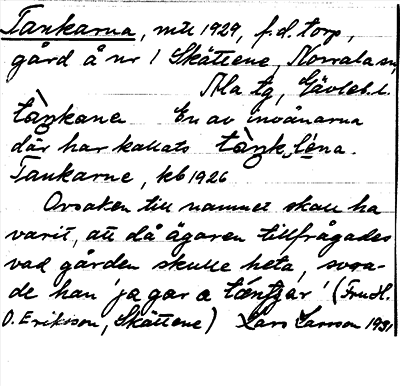 Tankarna, mtl 1929, f.d. torp,
gård å nr 1 Skättene, Norrala sn,
Ala tg, Gävleb. l.
tàŋkana En av invånarna
där har kallats tàŋk_léna.
Tankarne, kb 1926
Orsaken till namnet skall ha
varit, att då ägaren tillfrågades
vad gården skulle heta, svara-
de han 'ja gar a (Fru H.
O. Eriksson, Skättene) Lars Larsson 1931